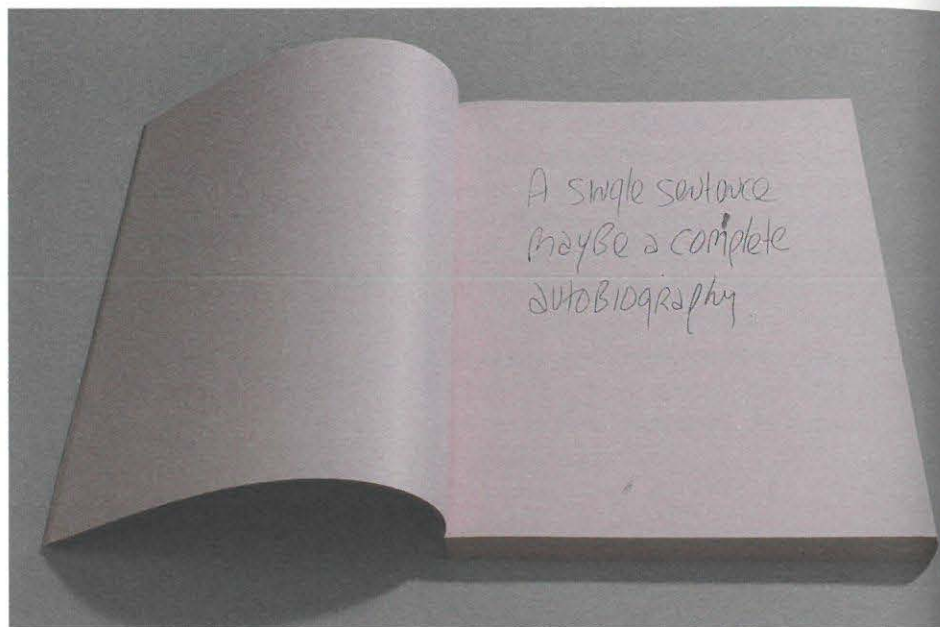 A single sentence
mayBe a complete
autoBiogRaphy